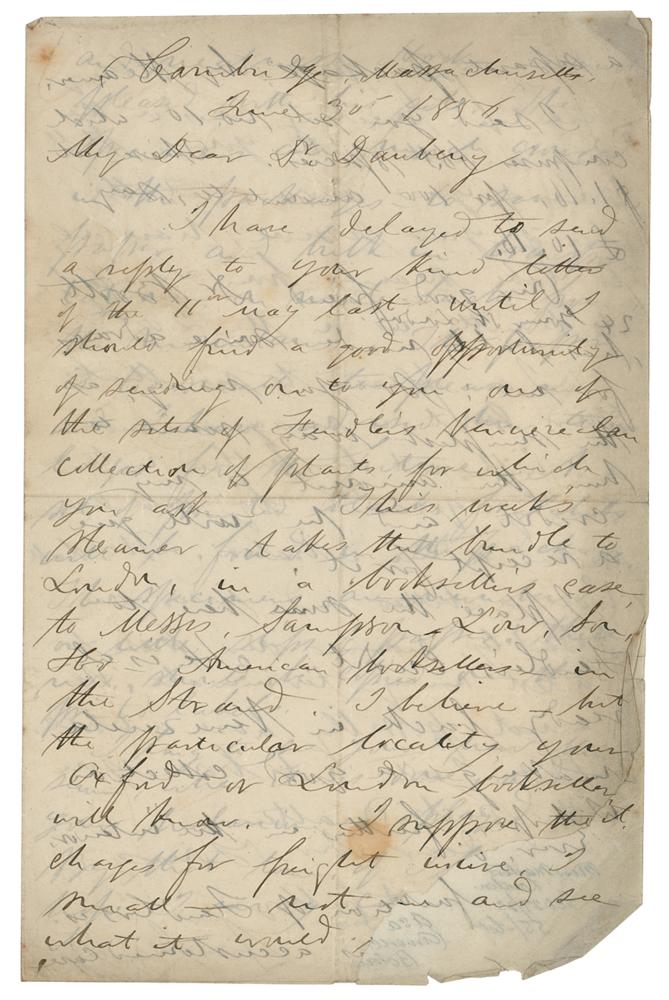 Cambridge, Massachusetts.
June 30 1856
My Dear Dr Daubeny
I have delayed to send
a reply to your kind letter
of the 11 May last until I
should find a good opportunity
of sending on to you, one of
the sets of Fendler's Venezuelan
collection of plants for which
you ask. This week's
steamer takes the bundle to
London, in a bookseller's case
to Messrs. Sampson Low, Son,
American booksellers in
the Strand. I believe – but
the particular locality your
Oxford or London bookseller
will know. I suppose the
charges for freight
small – not and see
what it would